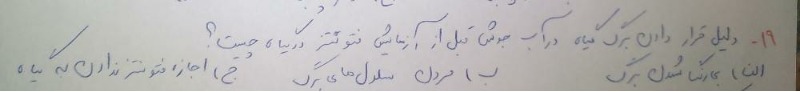 ۱۹- دلیل قرار دادن برگ گیاه در آب جوش قبل از آزمایش فتوسنتز در گیاه چیست؟
الف) بی‌رنگ شدن برگ ب) مردن سلول‌های برگ ج) اجازه فتوسنتز ندادن به گیاه